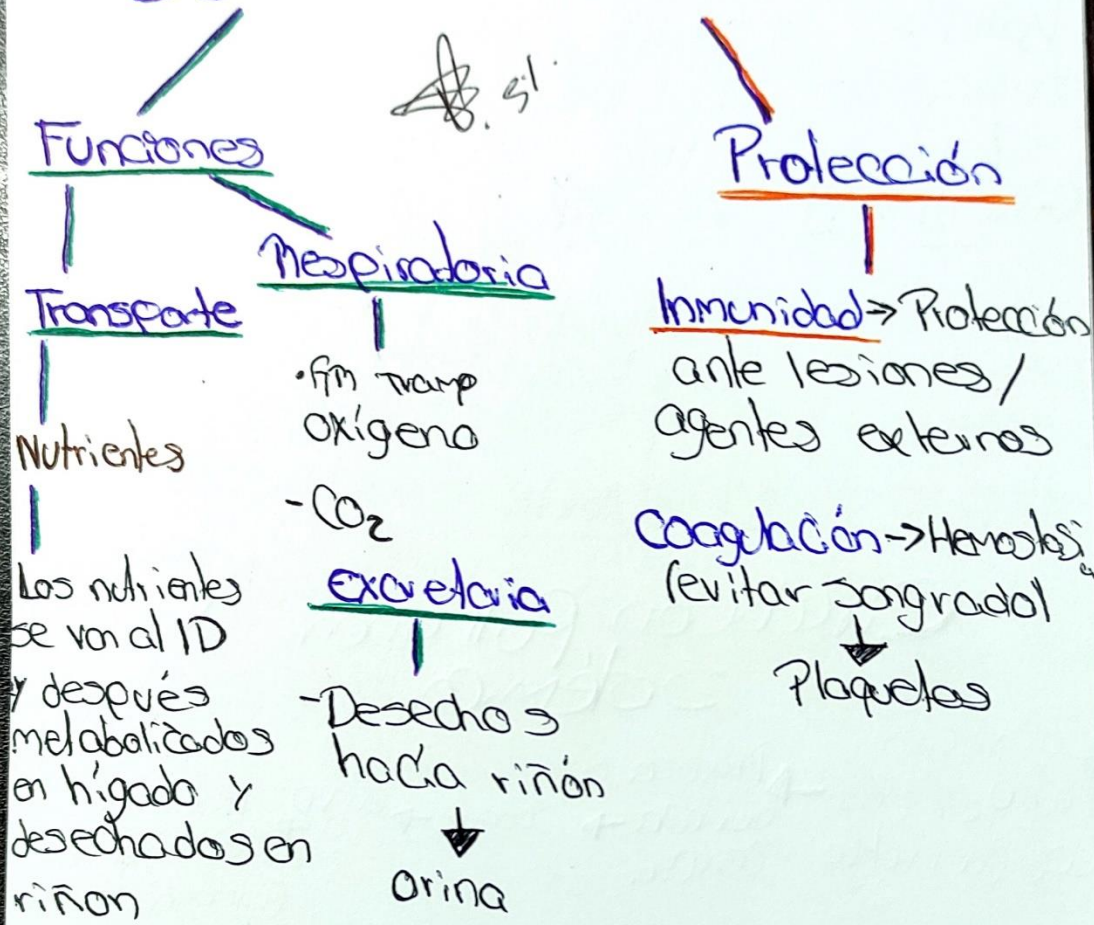 Funciones
Transporte
Nutrientes
Los nutrientes
se van al ID
y después
metabolizados
en hígado y
desechados en
riñon
Respiratoria
oxígeno
-CO2
Excretoria
-Desechos
hacia riñón
orina
Protección
Inmunidad→Protección
ante lesiones/
agentes externos
Coagulación→Hemostasi
(evitar sangrado)
Plaquetas